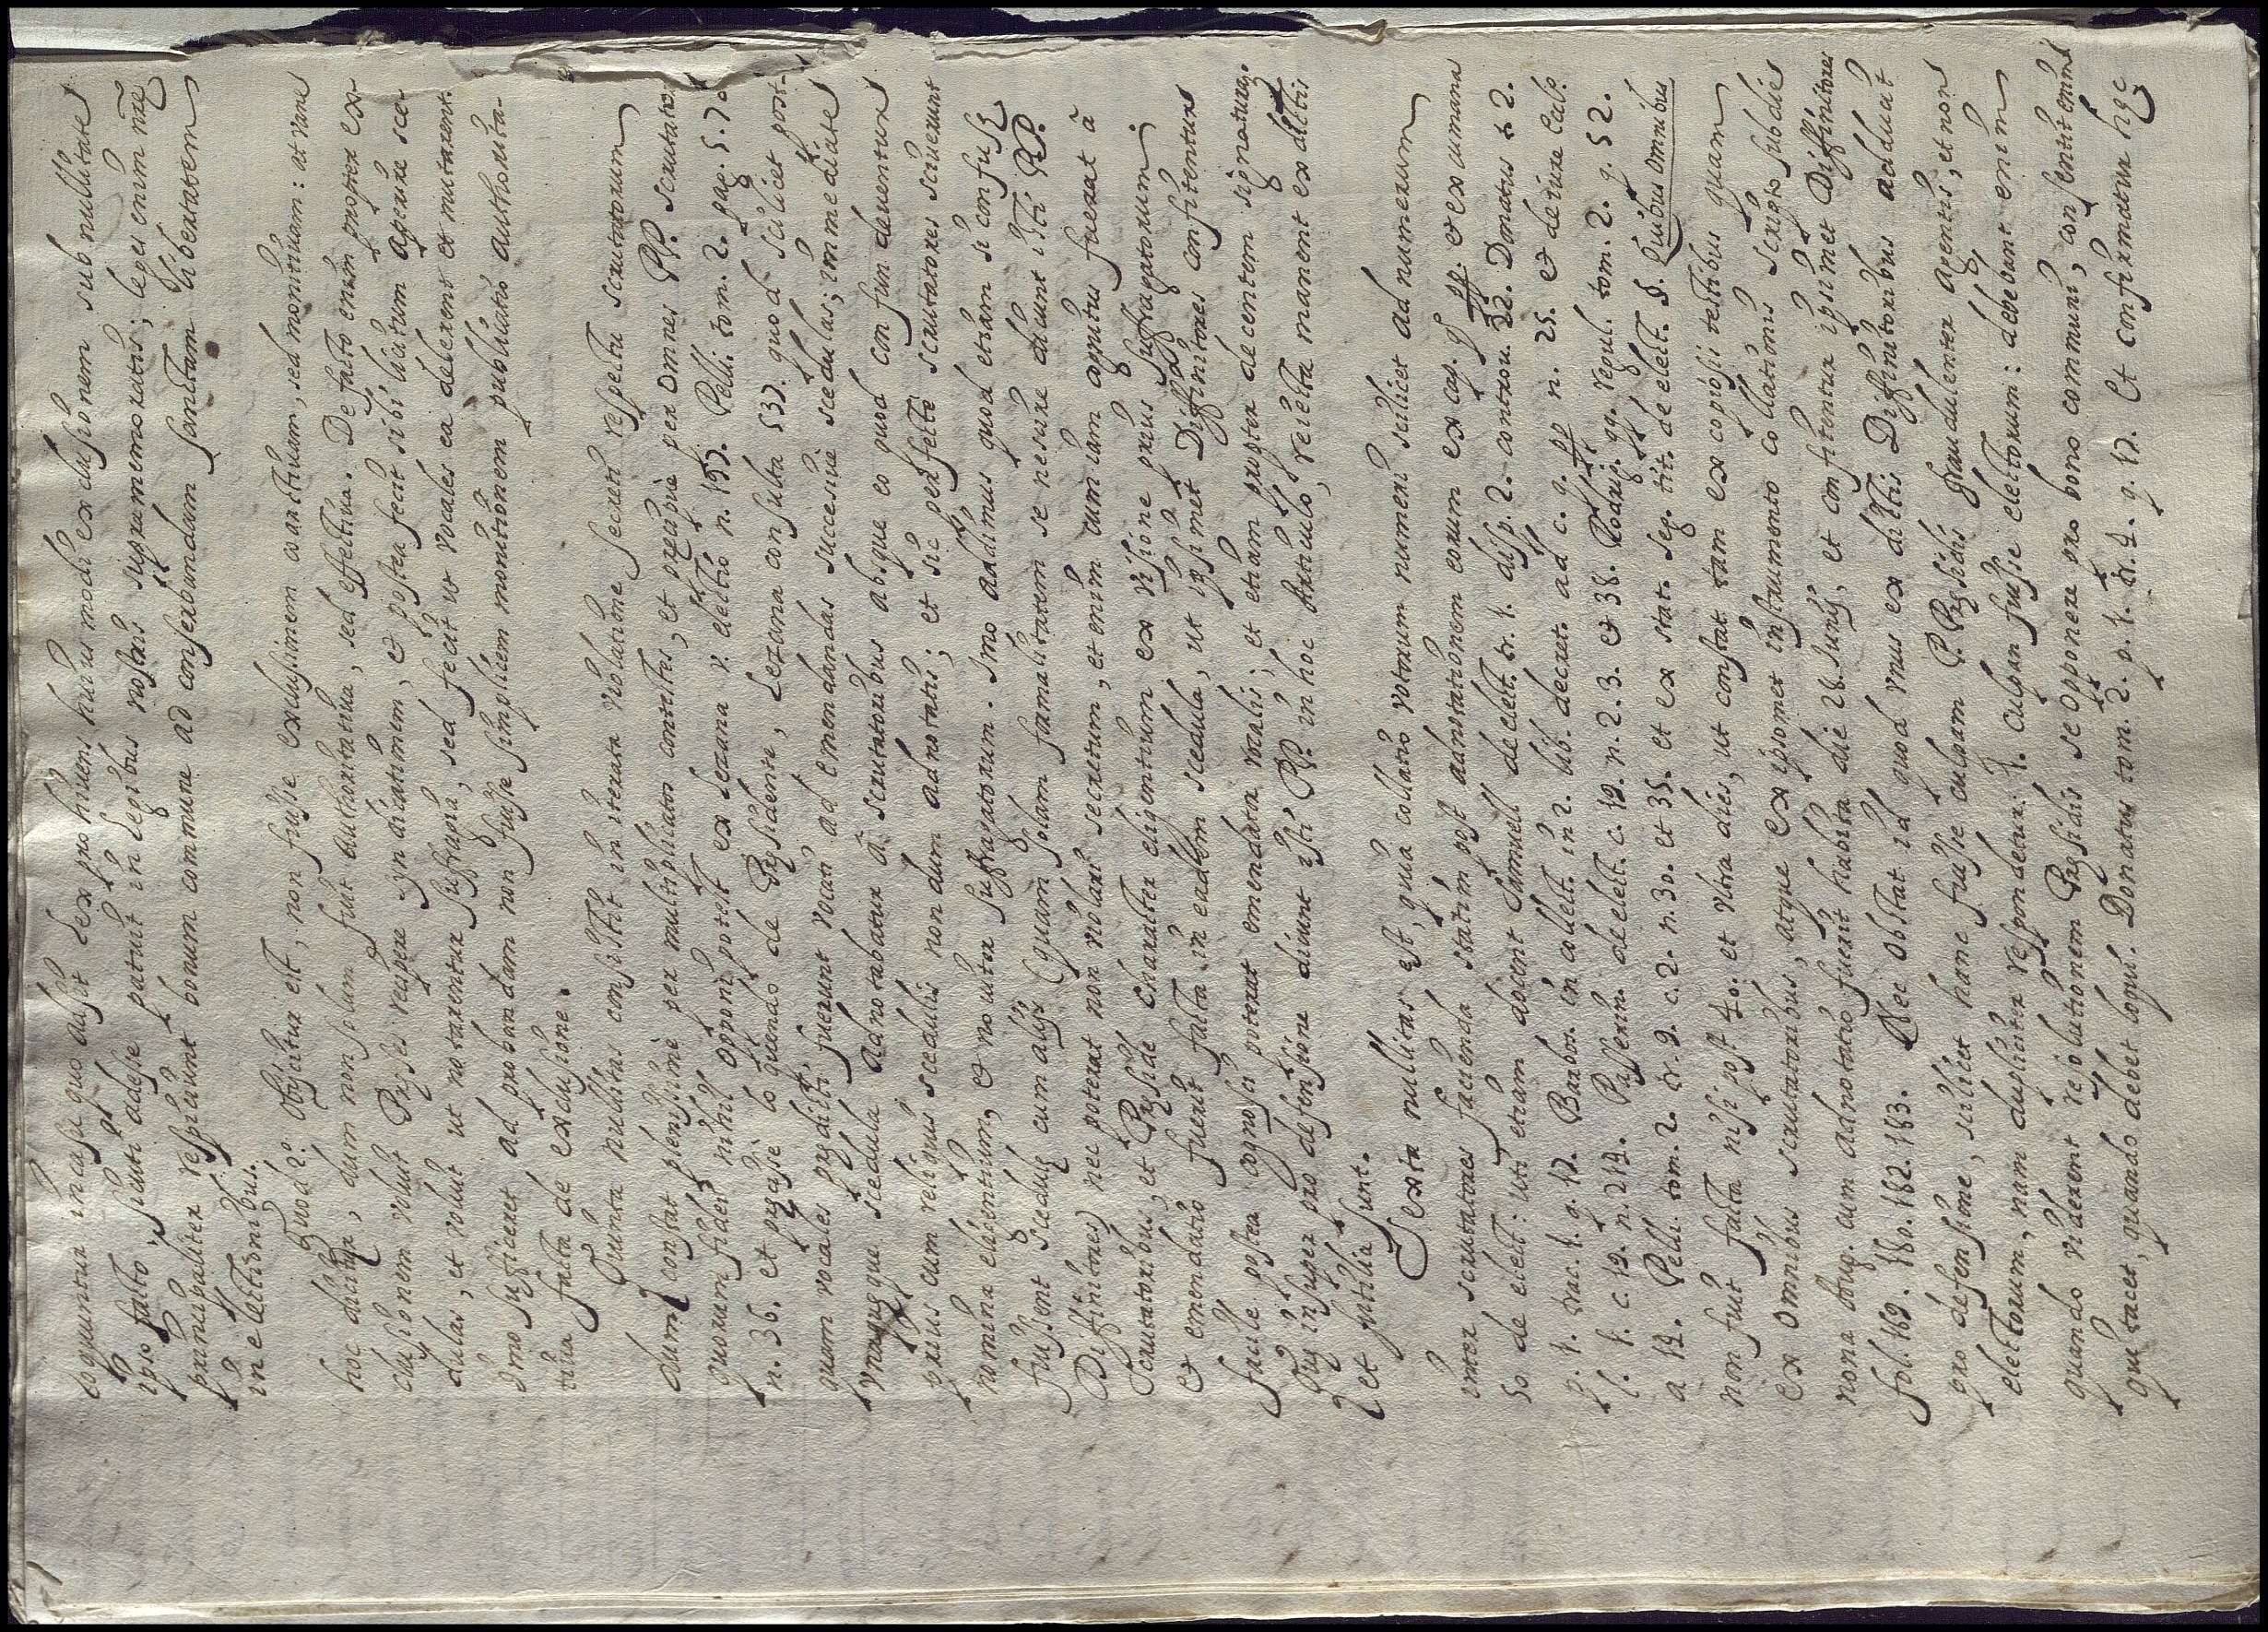 loquuntur in casu quo adsit lex prohibens huius modi exclusionem sub nullitate
ipso facto, sicuti adesse patuit in legibus nostris supramemoratis; leges enim nræ
principaliter respiciunt bonum commune ad conserbandam sanctam libertatem
in electionibus.
Quod 2º. Obijcitur est, non fuisse exclusionem coarctivam, sed monitivam: at vane
hoc dicitur, dum non solum fuit authoritativa, sed effectiva. De facto enim propter ex-
clusionem voluit Præses recipere syndicatum, & postea fecit sibi licitum aperire sce-
dulas, et voluit ut notarentur suffragia, sed fecit ut vocales ea delerent et mutarent.
Imo sufficeret ad probandam non fuisse simplicem monitionem publicatio authorita-
tiva facta de exclusione.
Quinta nullitas consistit in iterata violatione secreti respectu scrutatorum
dum constat plenissime per multiplicatos contestes, et præcipue per omnes PP. scrutatores
quorum fidei nihil opponi potest ex Lezana v. electio n. 197. Pelli. tom. 2. pag. 5. 70
n. 36. et præcise loquendo de Præsidente, Lezana consulta 537. quod scilicet post-
quam vocales prædicti fuerunt vocati ad emendandas succesive scedulas; immediate
unaquæque scedula adnotabatur à scrutatoribus absque eo quod confunderentur
prius cum reliquis scedulis nondum adnotatis; et sic perfecte scrutatores sciverunt
nomina eligentium, & noviter suffragatorum. Imo addimus quod etiam si confusæ
fuissent scedulæ cum alijs (quam solam formalitatem se nescire dicunt isti RR.
Diffinitores) nec poterat non violari secretum, etenim cum iam cognitus fuerat à
Scrutatoribus, et Præside character eligentium ex visione prius suffragatorum;
& emendatio fuerit facta in eadem scedula, ut ipsimet Diffinitores confitentur
facile postea cognosci poterat emendata vocalis; et etiam propter decentem signaturæ.
Quæ insuper pro defensione dicunt isti PP. in hoc Articulo, reiecta manent ex dictis
et futilia sunt.
Sexta nullitas est, quia collatio votorum numeri scilicet ad numerum
inter scrutatores facienda statim post adnotationem eorum ex cap. & ex cumana
50. de elect: uti etiam docent Samuell de elect. tr. 1. disp. 2. controu. 32. Donatus to 2.
p. 1. trac. 1. q. 17. Barbos. in collect. in 2. lib. decret. ad c. n. 25. & de iure Cab.
l. 1. c. 19. n. 214. Passerin. de elect. c. 19. n. 2. 3. & 38. Rodrig. qq. regul. tom. 2. q. 52.
a 14. Pelli. tom. 2. tr. 9. c. 2. n. 30. et 35. et ex stat. seg. tit. de elect. §. Quibus omnibus
non fuit facta nisi post 40. et ultra dies, ut constat tam ex copiosis testibus quam
ex omnibus scrutatoribus, atque ex ipsomet instrumento collationis scripto sub die
nona Aug. cum adnotatio fuerit habita die 28. Iunij, et confitentur ipsimet Diffinitores
fol. 169. 180. 182. 183. Nec obstat id quod unus ex dictis Diffinitoribus adducit
pro defensione, scilicet hanc fuisse culpam P. Præsidis fraudulenter agentis, et non
electorum, nam dupliciter respondetur. 1. culpan fuisse electorum: debebunt enim
quando viderunt resolutionem Præsidis se opponere pro bono communi, consentit enim
qui tacet, quando debet loqui. Donatus tom. 2. p. 1. tr. 4. q. 17. Et confirmatur hæc